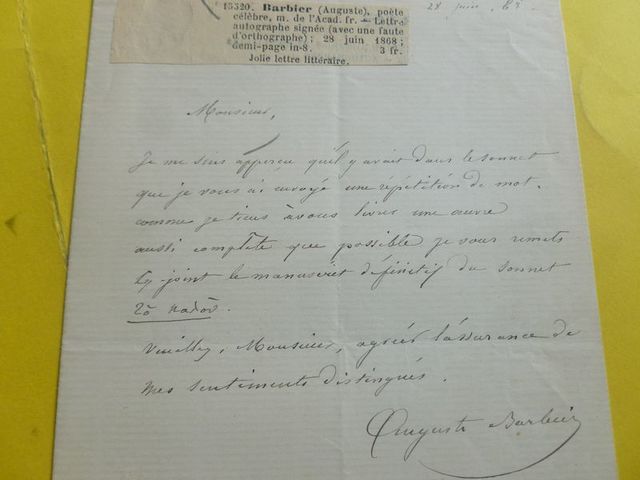 15320. Barbier (Auguste), poète
célèbre, m. de l'Acad. fr. — Lettre
autographe signée (avec une faute
d'orthographe); 28 juin 1868;
demi-page in-8. 3 fr.
Jolie lettre littéraire.
28 juin 68.
Monsieur,
Je me suis apperçu qu'il y avait dans le sonnet
que je vous ai envoyé une répétition de mot.
comme je tiens à vous livrer une œuvre
aussi complète que possible je vous remets
cy-joint le manuscrit définitif du sonnet
Veuillez, Monsieur, agréer l'assurance de
mes sentiments distingués.
Auguste Barbier